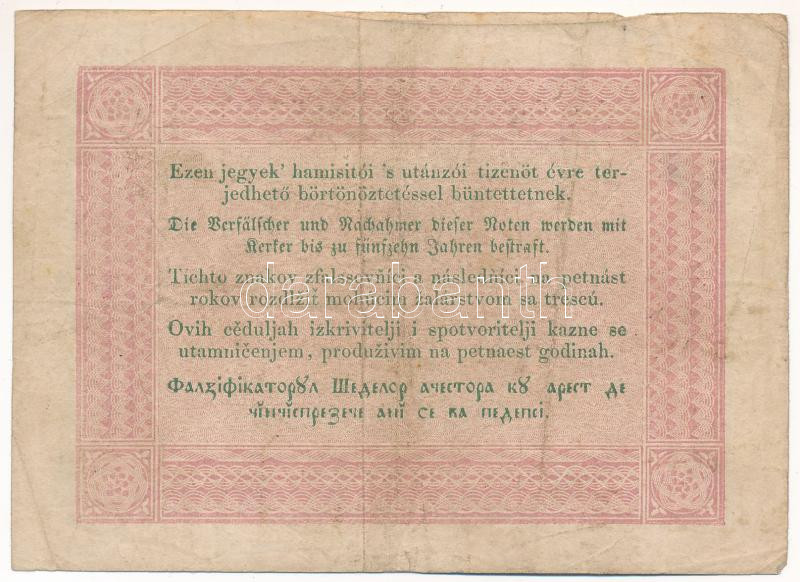 Ezen jegyek' hamisitói 's utánzói tizenöt évre ter-
jedhető börtönöztetéssel büntettetnek.
Die Verfälscher und Nachahmer dieser Noten werden mit
Kerker bis zu fünfzehn Jahren bestraft.
Tíchto znakov zfalssovňíci a následňíci na petnást
rokov rozdlžiť mohúcim žalárstvom sa trescú.
Ovih cěduljah izkrivitelji i spotvoritelji kazne se
utamničenjem, produživim na petnaest godinah.
Фалціфікаторꙋл Шеделор ачестора кꙋ арест де
чінчіспрезече ані се ва педепсі.
darabanth